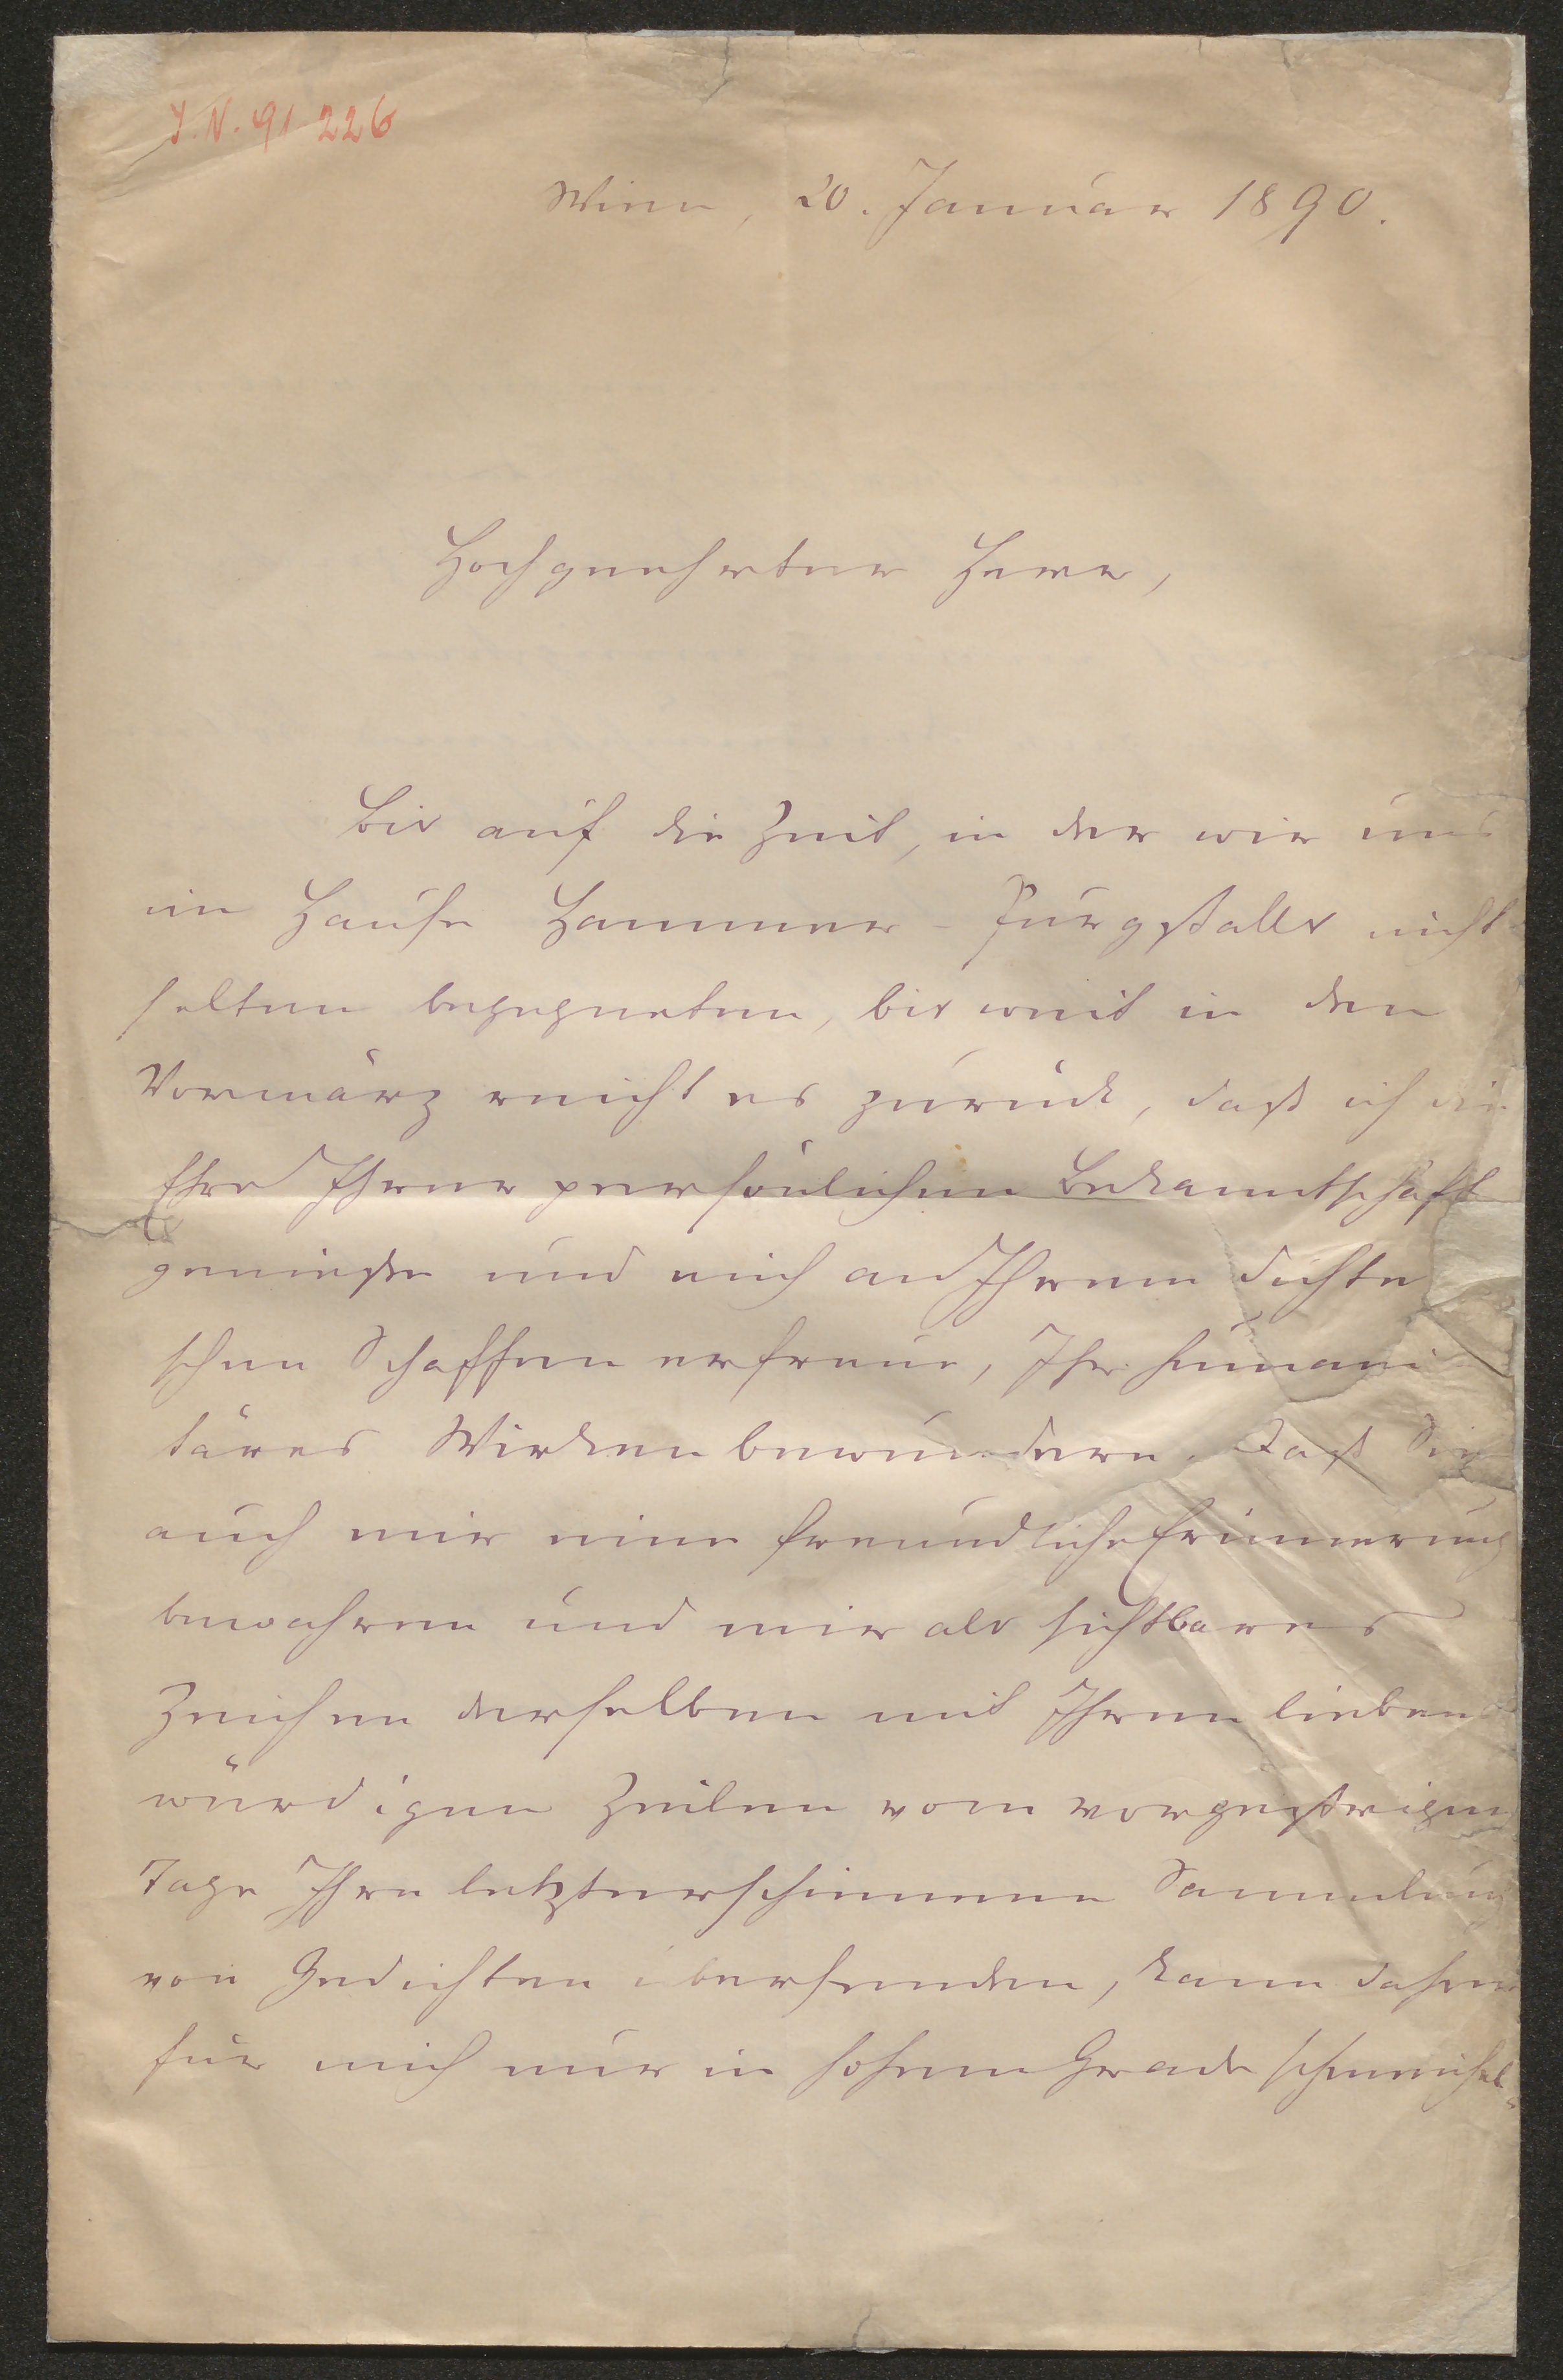 I. N. 91 226
Wien, 20. Januar 1890.
Hochgeehrter Herr,
Bis auf die Zeit, in der wir uns
im Hause Hammer-Purgstalls nicht
selten begegneten, bis weit in den
Vormärz reicht es zurück, daß ich die
Ehre Ihrer persönlichen Bekanntschaft
genieße und mich an Ihrem dichte
schen Schaffen erfreue, Ihr humani
täres Wirken bewundere. Daß Sie
auch mir eine freundliche Erinnerung
bewahren und mir als sichtbares
Zeichen derselben mit Ihren lieben
würdigen Zeilen vom vorgestrigen
Tage Ihre letzterschienene Sammlung
von Gedichten übersenden, kann daher
für mich nur in hohem Grade schmeichel-